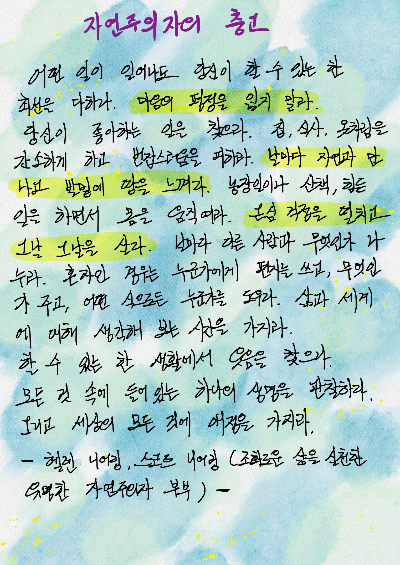 자연주의자의 충고
어떤 일이 일어나도 당신이 할 수 있는 한
최선을 다하라. 마음의 평정을 잃지 말라.
당신이 좋아하는 일을 찾으라. 집, 식사, 옷차림을
간소하게 하고 번잡스러움을 피하라. 날마다 자연과 만
나고 발밑에 땅을 느껴라. 농장일이나 산책, 힘든
일을 하면서 몸을 움직여라. 근심 걱정을 떨치고
그날 그날을 살라. 날마다 다른 사람과 무엇인가 나
누라. 혼자인 경우는 누군가에게 편지를 쓰고, 무엇인
가 주고, 어떤 식으로든 누군가를 도우라. 삶과 세계
에 대해 생각해 보는 시간을 가지라.
할 수 있는 한 생활에서 웃음을 찾으라.
모든 것 속에 들어 있는 하나의 생명을 관찰하라.
그리고 세상의 모든 것에 애정을 가지라.
- 헬렌 니어링, 스코트 니어링 (조화로운 삶을 실천한
유명한 자연주의자 부부) -